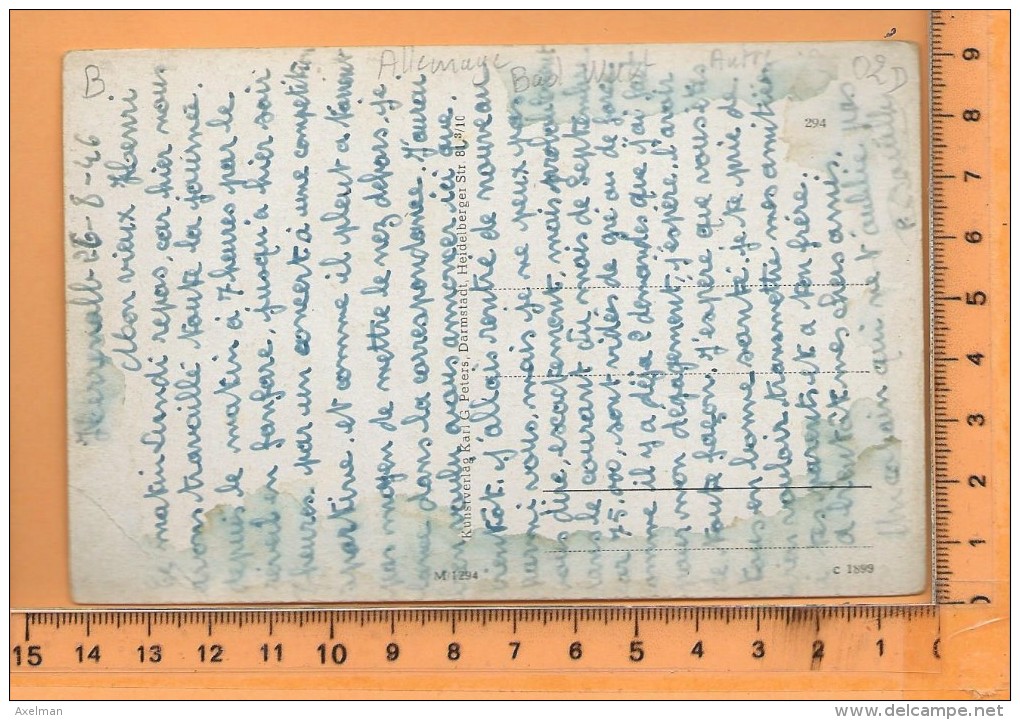 B
Allemagne
Autre
02D
294
26-8-46
Mon vieux Henri
matin lundi repos, car hier nous
avons travaillé toute la journée.
le matin à 7 heures par le
en fanfare, jusqu'à hier soir
heures. par un concert à une
et comme il pleut à torrent
moyen de mettre le nez dehors je
lance dans la correspondance.
nous annoncer que
j'allais rentrer de nouveau
parmi vous, mais je ne peux pas
vous dire, exactement, mais
dans le courant du mois de Septembre
75.000, sont vidés de gré ou de force
comme il y a déjà 2 demandes que j'ai fait
pour mon dégagement, j'espère l'avoir
de toute façon. J'espère que vous êtes
tous en bonne santé, je te prie de
vouloir transmettre mes amitiés
parents et à ton frère.
à bientôt mes chers amis.
Un copain qui ne t'oublie pas
Kunstverlag Karl G. Peters, Darmstadt, Heidelberger Str. 81 3/10
M 1294
c 1899
0 1 2 3 4 5 6 7 8 9
15 14 13 12 11 10 9 8 7 6 5 4 3 2 1 0
Axelman
www.delcampe.net